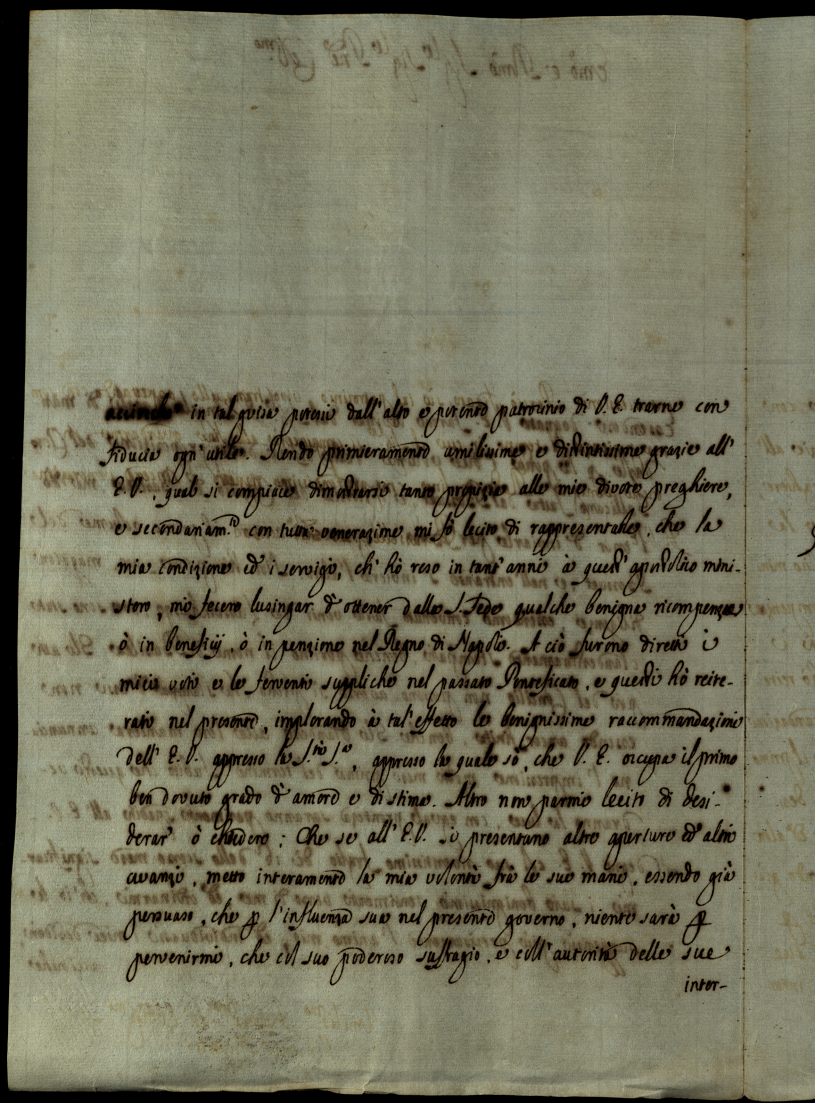 in tal guisa potessi dall'alto e potente patrocinio di V. E. trarne con
fiducia ogn'utile. Rendo primieramente umilissime e distintissime grazie all'
E. V., qual si compiace dimostrarsi tanto propizia alle mie divote preghiere,
e secondariam.te con tutta venerazione mi fò lecito di rappresentarle, che la
mia condizione ed i servigj, ch'hò reso in tant'anni à quest'apostolico mini-
stero, mi fecero lusingar d'ottener dalla S. Sede qualche benigna ricompenza
ò in beneficij, ò in penzione nel Regno di Napoli. A ciò furono diretti i
miei voti e le ferventi suppliche nel passato Pontificato, e questi hò reite-
rati nel presente, implorando à tal'effetto le benignissime raccommandazioni
dell'E. V. appresso la S.tà S.a, appresso la quale sò, che V. E. occupa il primo
ben dovuto grado d'amore e di stima. Altro non parmi lecito di desi-
derar' ò chiedere; Che se all'E. V. si presentano altre aperture ed altri
avanzi, metto interamente la mia volontà frà le sue mani, essendo già
persuaso, che p l'influenza sua nel presente governo, niente sarà p
pervenirmi, che col suo poderoso suffragio, e coll'autorità delle sue
inter-